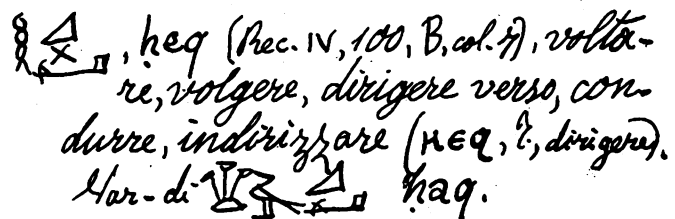 , ḥeq (Rec. IV, 100, B, col. 7), volta-
re, volgere, dirigere verso, con-
durre, indirizzare (ϩⲉϥ, ?, dirigere).
Var. di ḥaq.